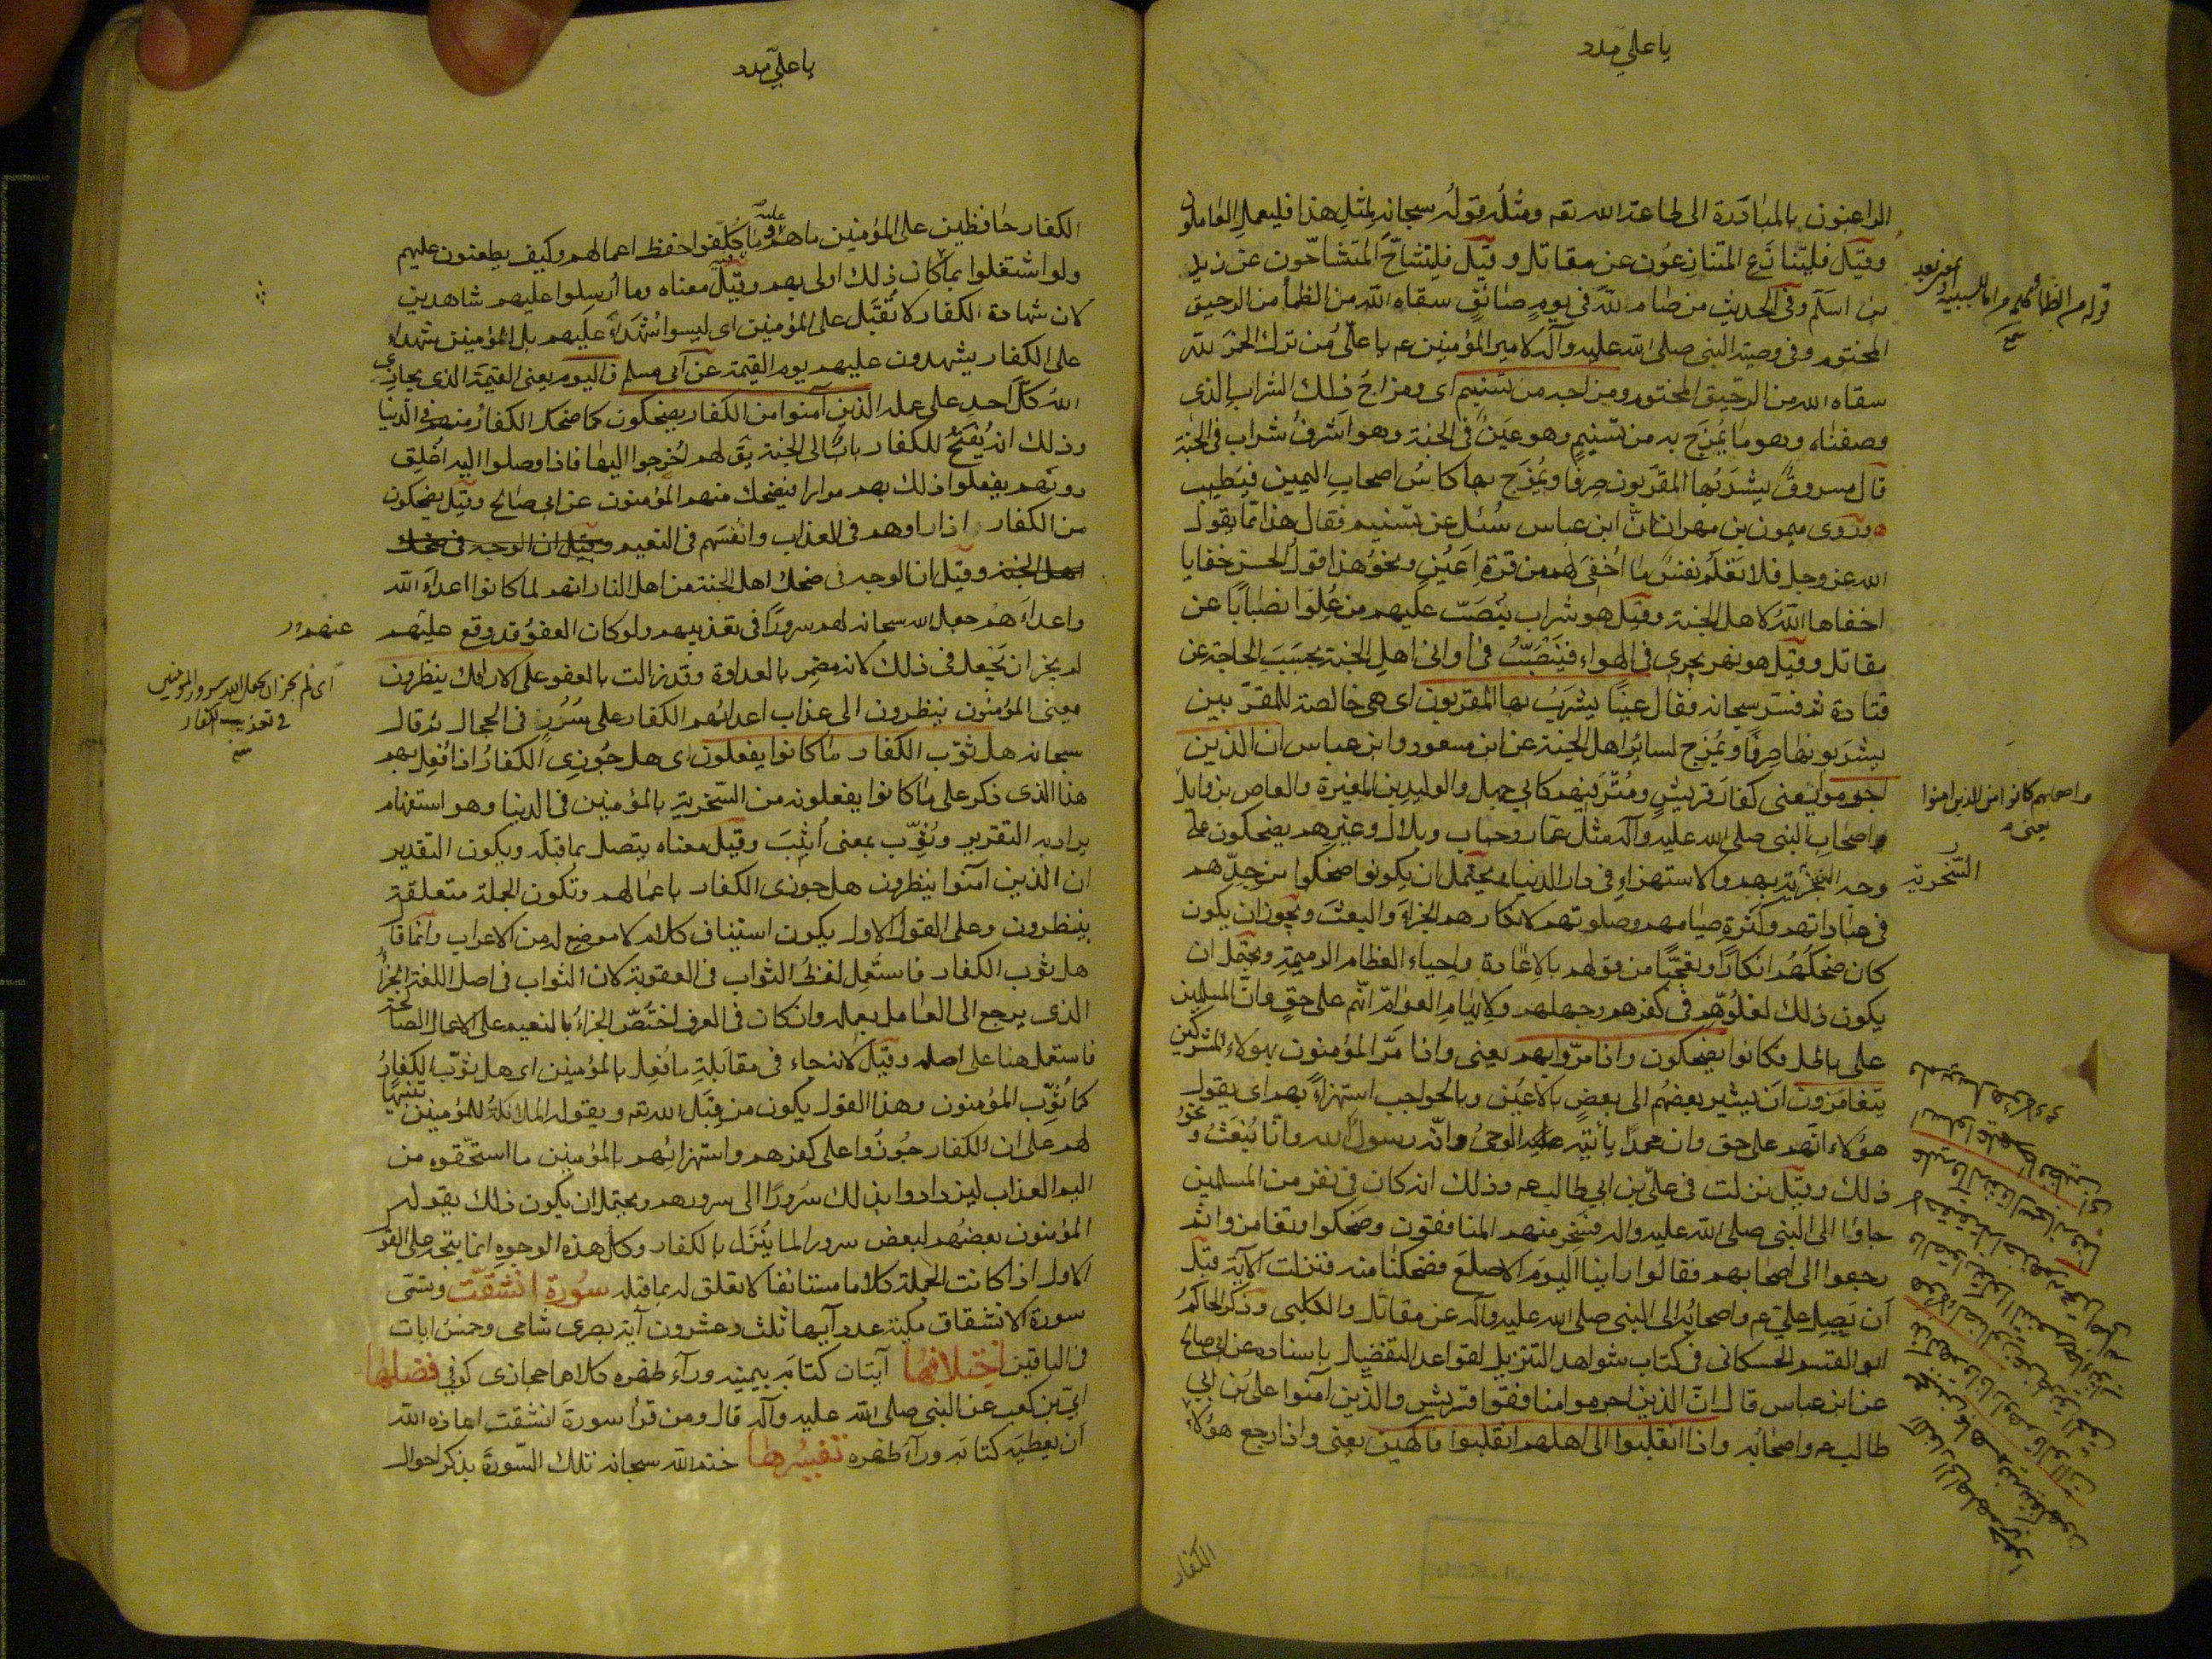 يا علي مدد
الراغبون بالمبادرة الى طاعة الله تعه ومثله قوله سبحانه لمثل هذا فليعمل العاملون
وقيل فليتنازع المتنازعون عن مقاتل وقيل فليتشاح المتشاحون عن زيد
بن اسلم وفي الحديث من صام لله في يوم صائف سقاه الله من الظمأ من الرحيق
المختوم وفي وصية النبي صلى الله عليه وآله لامير المؤمنين عه يا علي من ترك الخمر لله
سقاه الله من الرحيق المختوم ومزاجه من تسنيم اى ومزاج ذلك الشراب الذى
وصفناه وهو ما يمزج به من تسنيم وهو عين في الجنة وهو اشرف شراب في الجنة
قال مسروق يشربها المقربون صرفا ويمزج بها كاس اصحاب اليمين فيطيب
وروى ميمون بن مهران ان ابن عباس سئل عن تسنيم فقال هذا مما يقول
الله عز وجل فلا تعلم نفس ما اخفى لهم من قرة اعين ونحو هذا قول الحسن خفايا
اخفاها الله لاهل الجنة وقيل هو شراب ينصب عليهم من علو انصبابا عن
مقاتل وقيل هو نهر يجرى في الهواء فينصب في اوانى اهل الجنة بحسب الحاجة عن
قتادة ثم فسره سبحانه فقال عينا يشرب بها المقربون اى هى خالصة للمقربين
يشربونها صرفا ويمزج لسائر اهل الجنة عن ابن مسعود وابن عباس ان الذين
اجرموا يعنى كفار قريش ومترفيهم كابي جهل والوليد بن المغيرة والعاص بن وايل
واصحاب النبي صلى الله عليه وآله مثل عمار وخباب وبلال وغيرهم يضحكون على
وجه السخرية بهم والاستهزاء في دار الدنيا ويحتمل ان يكونوا ضحكوا من جدهم
في عباداتهم وكثرة صيامهم وصلوتهم لانكارهم الجزاء والبعث ويجوز ان يكون
كان ضحكهم انكارا وتعجبا من قولهم بالاعادة واحياء العظام الرميمة ويحتمل ان
يكون ذلك لغلوهم في كفرهم وجهلهم ولايهام العوام انهم على حق وان المسلمين
على باطل فكانوا يضحكون واذا مروا بهم يعنى واذا مر المؤمنون بهولاء المشركين
يتغامزون اى يشير بعضهم الى بعض بالاعين وبالحواجب استهزاء بهم اى يقول
هؤلاء انهم على حق وان محمدا يأتيه الوحى وانه رسول الله وانا نبعث ونحو
ذلك وقيل نزلت في على بن ابي طالب عه وذلك انه كان في نفر من المسلمين
جاؤا الى النبي صلى الله عليه واله فسخر منهم المنافقون وضحكوا وتغامزوا ثم
رجعوا الى اصحابهم فقالوا راينا اليوم الاصلع فضحكنا منه فنزلت الآية قبل
ان يصل علي عه واصحابه الى النبي صلى الله عليه وآله عن مقاتل والكلبى وذكر الحاكم
ابو القسم الحسكانى في كتاب شواهد التنزيل لقواعد التفضيل باسناده عن ابى صالح
عن ابن عباس قال ان الذين اجرموا منافقوا قريش والذين آمنوا على بن ابي
طالب عه واصحابه واذا انقلبوا الى اهلهم انقلبوا فاكهين يعنى واذا رجع هؤلاء
واصحابهم كانوا من الذين امنوا
يعنى
السخرية
الكفار
يا علي مدد
الكفار حافظين على المؤمنين ما هم عليه وما كلفوا حفظ اعمالهم وكيف يطعنون عليهم
ولو اشتغلوا بما كان ذلك اولى بهم وقيل معناه وما أرسلوا عليهم شاهدين
لان شهادة الكفار لا تقبل على المؤمنين اى ليسوا شهداء عليهم بل المؤمنين شهداء
على الكفار يشهدون عليهم يوم القيمة عن ابى مسلم فاليوم يعنى القيمة الذى يجازى
الله كل احد على عمله الذين آمنوا من الكفار يضحكون كما ضحك الكفار منهم في الدنيا
وذلك انه يفتح للكفار باب الى الجنة يق لهم اخرجوا اليها فاذا وصلوا اليه اغلق
دونهم يفعلوا ذلك بهم مرارا فيضحك منهم المؤمنون عن ابى صالح وقيل يضحكون
من الكفار اذا راوهم في العذاب وانفسهم في النعيم وقيل ان الوجه في ضحك
اهل الجنة وقيل ان الوجه في ضحك اهل الجنة من اهل النار انهم لما كانوا اعداء الله
واعداءهم جعل الله سبحانه لهم سرورا في تعذيبهم ولو كان العفو قد وقع عليهم
لم يجز ان يجعل في ذلك لانه مضمر بالعداوة وقد زالت بالعفو على الارائك ينظرون
يعنى المؤمنون ينظرون الى عذاب اعدائهم الكفار على سرر في الحجال ثم قال
سبحانه هل ثوب الكفار ما كانوا يفعلون اى هل جوزى الكفار اذا فعل بهم
هذا الذى ذكر على ما كانوا يفعلونه من السخرية بالمؤمنين في الدنيا وهو استفهام
يراد به التقرير وثوب بمعنى أثيب وقيل معناه يتصل بما قبله ويكون التقدير
ان الذين آمنوا ينظرون هل جوزى الكفار باعمالهم وتكون الجملة متعلقة
بينظرون وعلى القول الاول يكون استيناف كلام لا موضع له من الاعراب وانما قا
هل ثوب الكفار فاستعمل لفظ الثواب في العقوبة لان الثواب في اصل اللغة الجزاء
الذى يرجع الى العامل بعمله وان كان في العرف اختص الجزاء بالنعيم على الاعمال الصالحة
فاستعمل هنا على اصله وقيل لانه جاء في مقابلة ما فعل بالمؤمنين اى هل ثوب الكفار
كما ثوب المؤمنون وهذا القول يكون من قبل الله تعه ويقوله الملائكة للمؤمنين تنبيها
لهم على ان الكفار جوزوا على كفرهم واستهزائهم بالمؤمنين ما استحقوه من
اليم العذاب ليزدادوا بذلك سرورا الى سرورهم ويحتمل ان يكون ذلك يقوله
المؤمنون بعضهم لبعض سرورا لما ينزل بالكفار وكل هذه الوجوه انما يتجه على القو
الاول اذا كانت الجملة كلاما مستانفا لا تعلق له بما قبله سورة انشقت وتسمى
سورة الانشقاق مكية عدد آيها ثلث وعشرون آية بصرى شامى وخمس ايات
في الباقين اختلافها آيتان كتابه بيمينه ورآء ظهره كلاهما حجازى كوفي فضلها
ابي بن كعب عن النبي صلى الله عليه وآله قال ومن قرأ سورة انشقت اعاذه الله
ان يعطيه كتابه ورآء ظهره تفسيرها ختم الله سبحانه تلك السورة بذكر احوال
عنهم
اى لم يجز ان يجعل الله سرور المؤمنين
في تعذيب الكفار